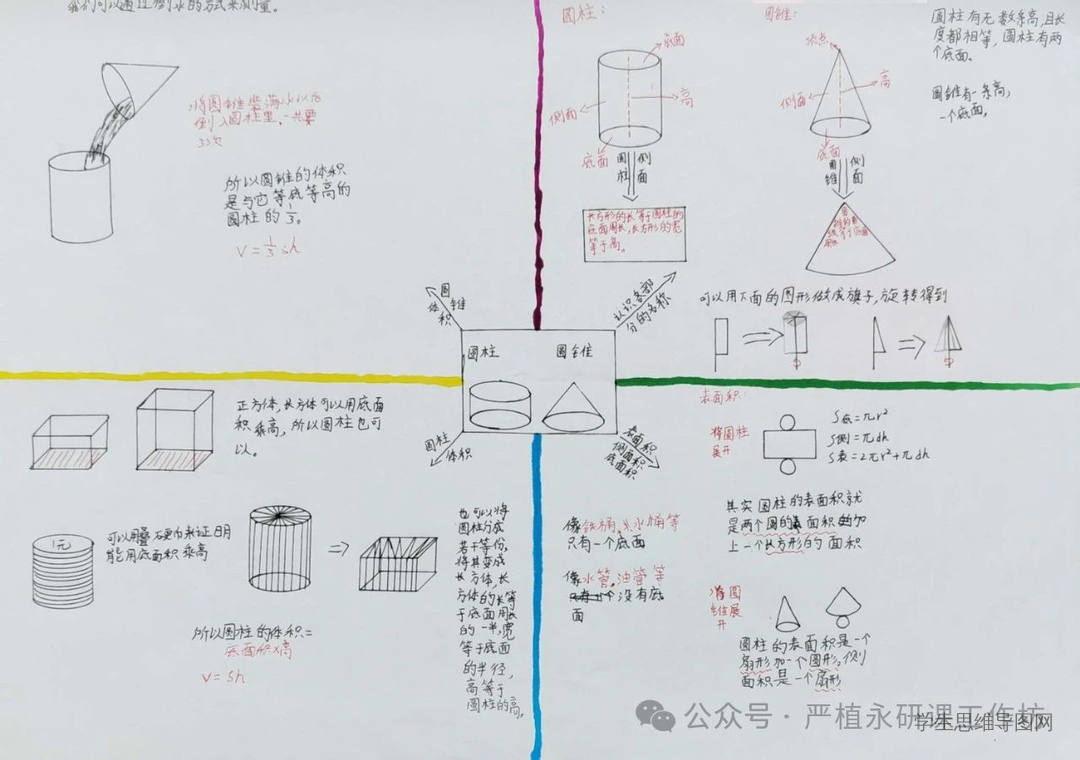 我们可以通过倒水的方式来测量。
将圆锥装满水以后
倒入圆柱里,一共要
3次
所以圆锥的体积
是与它等底等高的
圆柱的1/3。
V=1/3sh
圆柱:
底面
侧面
高
底面
圆柱
侧面
长方形的长等于圆柱的
底面周长,长方形的宽
等于高。
圆锥:
顶点
侧面
高
底面
圆锥
侧面
圆柱有无数条高,且长
度都相等,圆柱有两
个底面。
圆锥有一条高,
一个底面。
可以用下面的图形做成旗子,旋转得到
圆锥
体积
认识各部
分的名称
圆柱
圆锥
圆柱
体积
表面积
侧面积
底面积
正方体,长方体可以用底面
积乘高,所以圆柱也可
以。
1元
可以用叠硬币来证明
能用底面积乘高
所以圆柱的体积=
底面积×高
V=Sh
也可以将
圆柱分成
若干等份,
将其变成
长方体,长
方体的长等
于底面周长
的一半,宽
等于底面
的半径,
高等于
圆柱的高。
表面积:
将圆柱
展开
S底=πr²
S侧=πdh
S表=2πr²+πdh
其实圆柱的表面积就
是两个圆的面积加
上一个长方形的面积
像铁桶,水桶等
只有一个底面
像水管,油管等
没有底
面
将圆
锥展
开
圆柱的表面积是一个
扇形加一个圆形,侧
面积是一个扇形
公众号·严植永研课工作坊
学生思维导图网